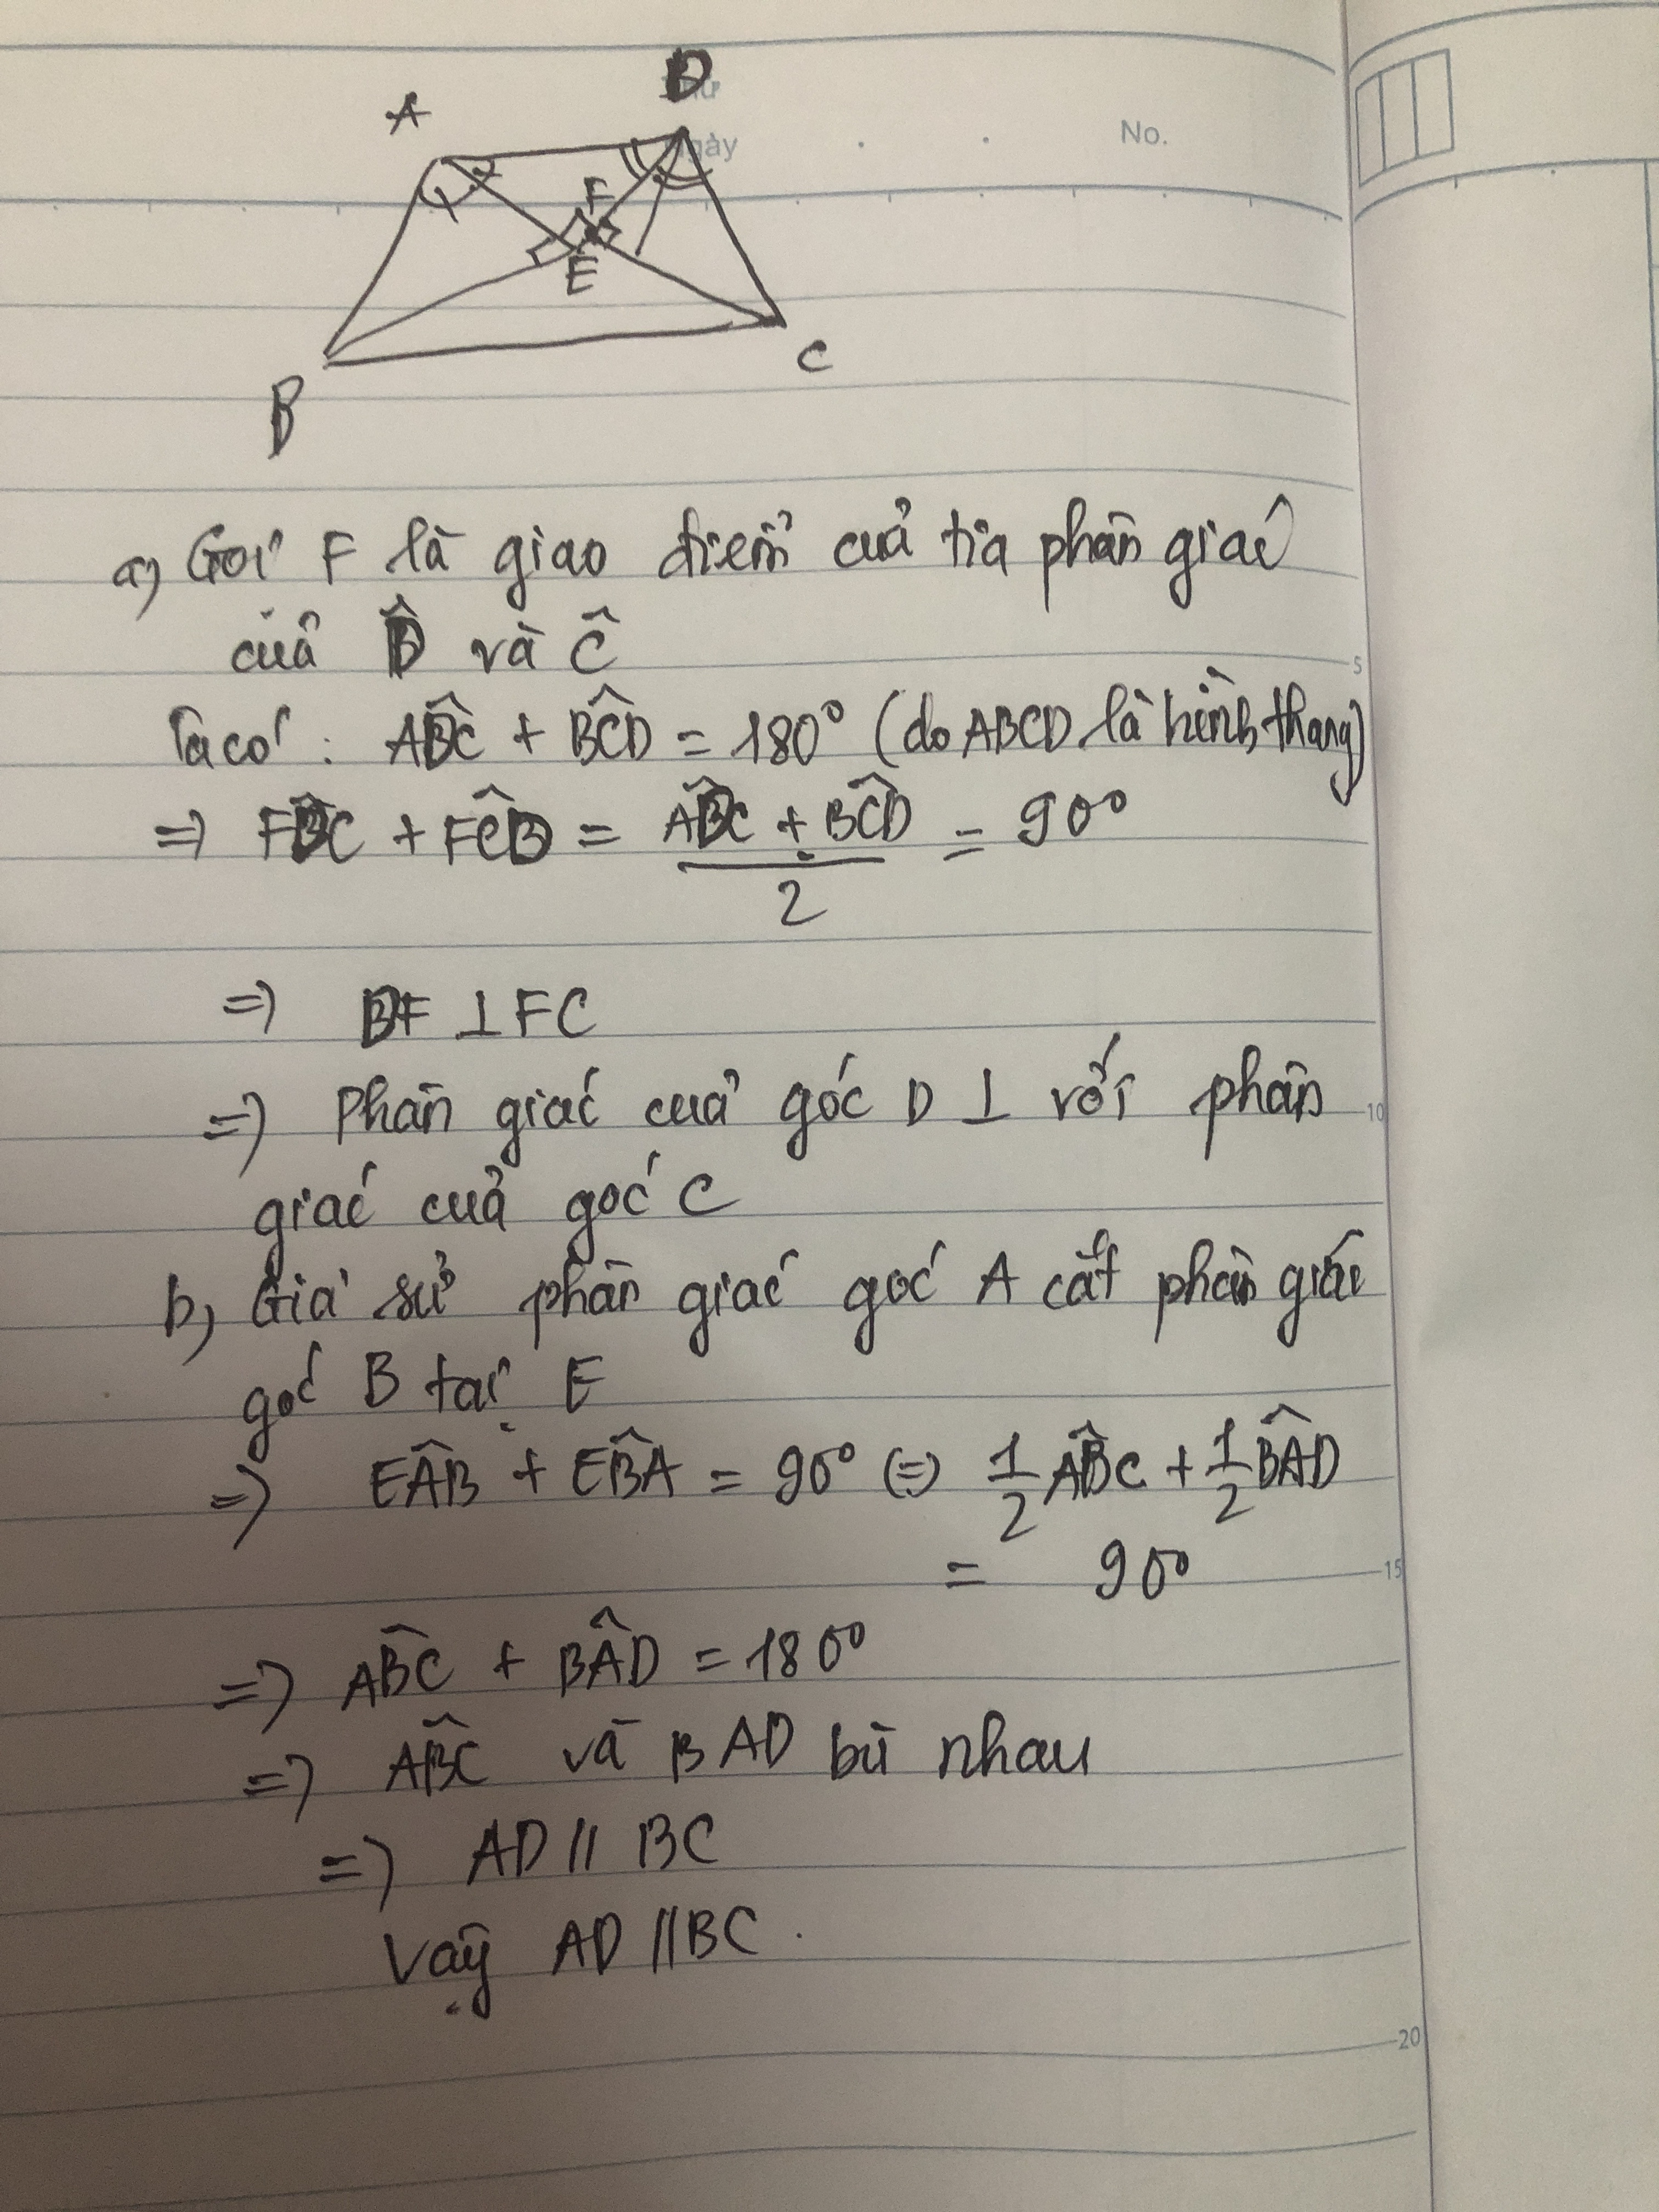 A
D
Thứ
Ngày
No.
F
E
B
C
a) Gọi F là giao điểm của tia phân giác
của D̂ và Ĉ
5
Ta có : AD̂C + BĈD = 180° (do ABCD là hình thang)
=> FD̂C + FĈD = (AD̂C + BĈD)/2 = 90°
=> DF ⊥ FC
=> Phân giác của góc D ⊥ với phân
10
giác của góc C
b) Giả sử phân giác góc A cắt phân giác
góc B tại E
=> EÂB + EB̂A = 90° (=) 1/2 AB̂C + 1/2 BÂD
= 90°
15
=> AB̂C + BÂD = 180°
=> AB̂C và BAD bù nhau
=> AD // BC
Vậy AD // BC .
20